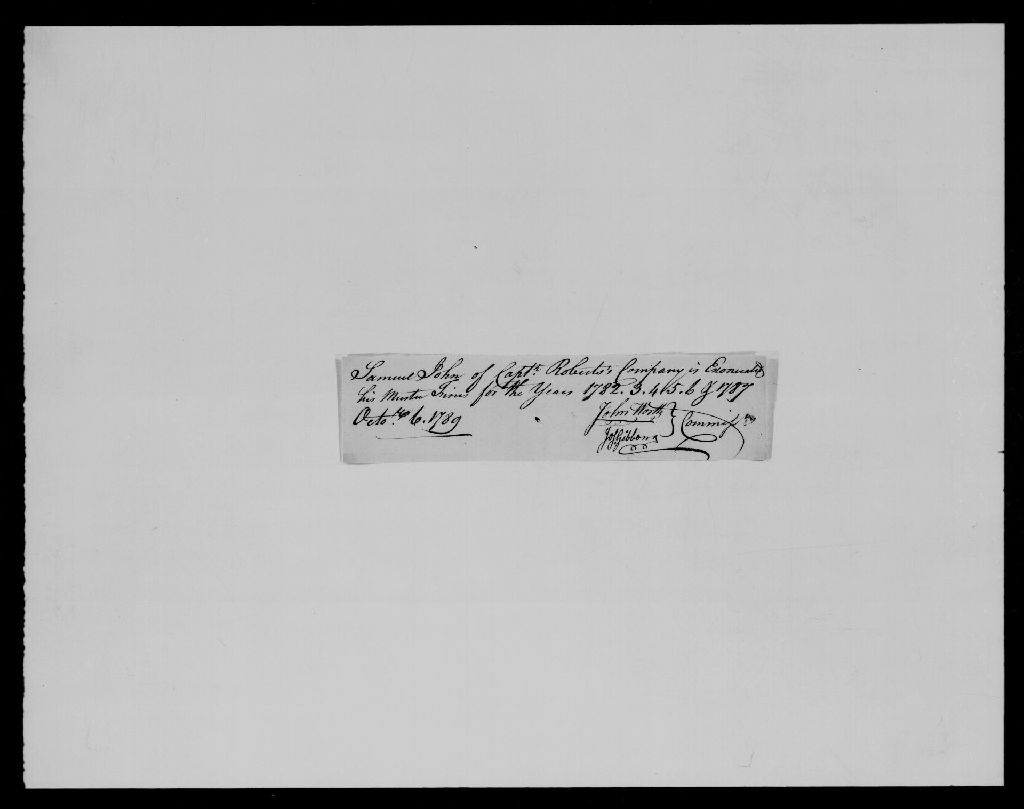 Samuel John of Capt.n Roberts's Company is Exonerated
his Muster Fines for the Years 1782. 3. 4. 5. 6 & 1787
Octo.r 6. 1789
John Worth } Commiss.rs
Jos Gibbons